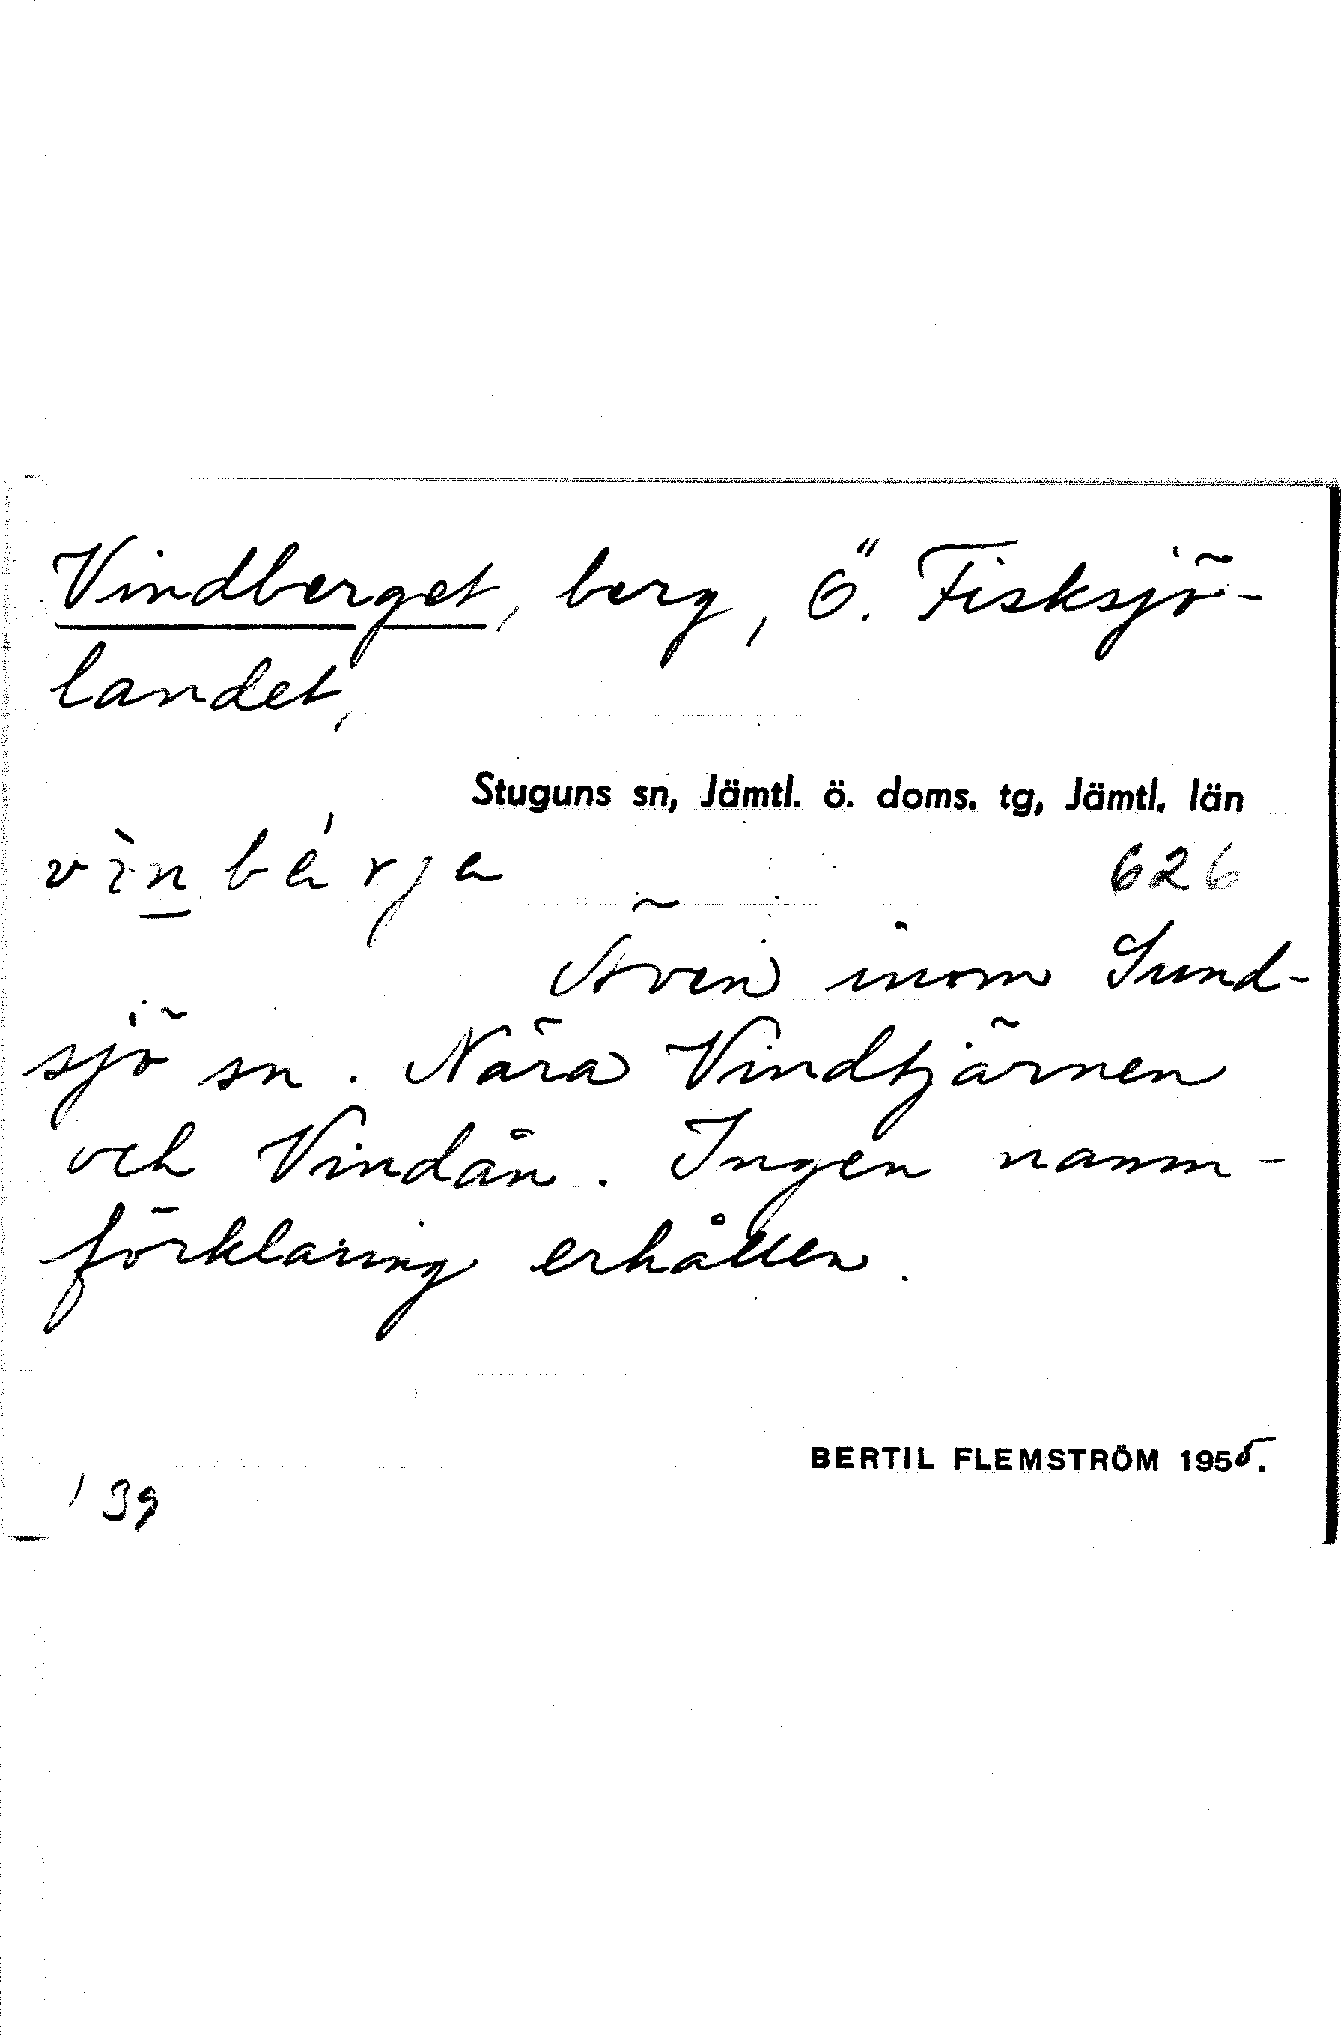 Vindberget, berg, Ö. Fisksjö-
landet,
Stuguns sn, Jämtl. ö. doms. tg, Jämtl. län
vìnbárja 626
Även inom Sund-
sjö sn. Nära Vindtjärnen
och Vindån. Ingen namn-
förklaring erhållen.
BERTIL FLEMSTRÖM 1955.
'39